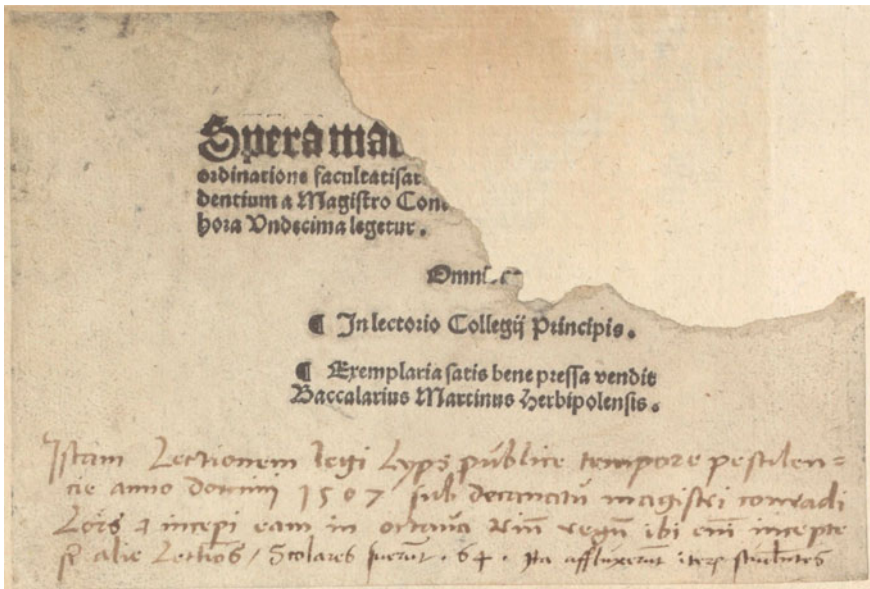 Spera mat
ordinatione facultatis art
dentium a Magistro Con
hora Vndecima legetur.
Omni
¶ In lectorio Collegij Principis.
¶ Exemplaria satis bene pressa vendit
Baccalarius Martinus Herbipolensis.
Istam Lectionem legi Lyps publice tempore pestilen=
cie anno domini 1507 sub decanatu magistri conradi
incepi eam in octava ibi incepte
alie Scolares fuerūt . 64 . Ita affluxerūt